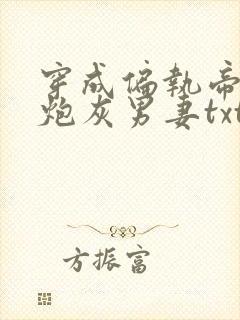 穿成偏执帝
炮灰男妻txt
方振富